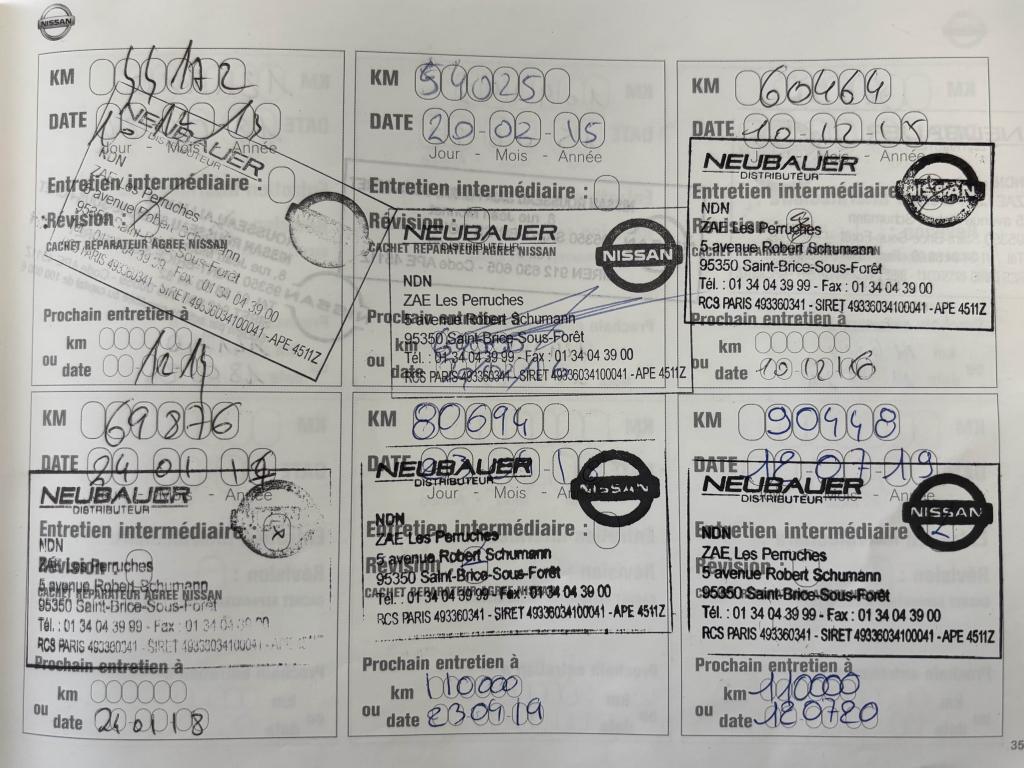 NISSAN
KM 60464
DATE 10-12-15
Jour - Mois - Année
NEUBAUER
DISTRIBUTEUR
NISSAN
Entretien intermédiaire
NDN
Révision
ZAE Les Perruches
CACHET REPARATEUR AGREE NISSAN
5 avenue Robert Schumann
95350 Saint-Brice-Sous-Forêt
Tél. : 01 34 04 39 99 - Fax : 01 34 04 39 00
RCS PARIS 493360341 - SIRET 49336034100041 - APE 4511Z
Prochain entretien à
km
ou date 10 12 16
KM 54025
DATE 20-02-15
Jour - Mois - Année
Entretien intermédiaire :
Révision :
NEUBAUER
DISTRIBUTEUR
CACHET REPARATEUR AGREE NISSAN
NISSAN
NDN
ZAE Les Perruches
Prochain entretien à
5 avenue Robert Schumann
95350 Saint-Brice-Sous-Forêt
km
Tél. : 01 34 04 39 99 - Fax : 01 34 04 39 00
ou date
RCS PARIS 493360341 - SIRET 49336034100041 - APE 4511Z
KM
DATE
Jour - Mois - Année
NEUBAUER
DISTRIBUTEUR
NDN
ZAE Les Perruches
Entretien intermédiaire :
5 avenue Robert Schumann
Révision :
95350 Saint-Brice-Sous-Forêt
CACHET REPARATEUR AGREE NISSAN
Fax : 01 34 04 39 00
SIRET 49336034100041 - APE 4511Z
Prochain entretien à
km
ou date
KM 69876
DATE 24 01
Année
NEUBAUER
DISTRIBUTEUR
Entretien intermédiaire :
NDN
ZAE Les Perruches
Révision
5 avenue Robert Schumann
CACHET REPARATEUR AGREE NISSAN
95350 Saint-Brice-Sous-Forêt
Tél. : 01 34 04 39 99 - Fax : 01 34 04 39 00
RCS PARIS 493360341 - SIRET 49336034100041 - APE
Prochain entretien à
km
ou date 24 01 18
KM 80694
DATE
Jour - Mois - Année
NEUBAUER
DISTRIBUTEUR
NISSAN
Entretien intermédiaire
NDN
ZAE Les Perruches
Révision
5 avenue Robert Schumann
95350 Saint-Brice-Sous-Forêt
CACHET REPARATEUR AGREE NISSAN
Tél. : 01 34 04 39 99 - Fax : 01 34 04 39 00
RCS PARIS 493360341 - SIRET 49336034100041 - APE 4511Z
Prochain entretien à
km 110000
ou date
KM 90448
DATE 12-07-19
Mois - Année
NEUBAUER
DISTRIBUTEUR
NISSAN
Entretien intermédiaire
NDN
ZAE Les Perruches
Révision :
5 avenue Robert Schumann
95350 Saint-Brice-Sous-Forêt
CACHET REPARATEUR AGREE NISSAN
Tél. : 01 34 04 39 99 - Fax : 01 34 04 39 00
RCS PARIS 493360341 - SIRET 49336034100041 - APE 4511Z
Prochain entretien à
km 110000
ou date 120720
35